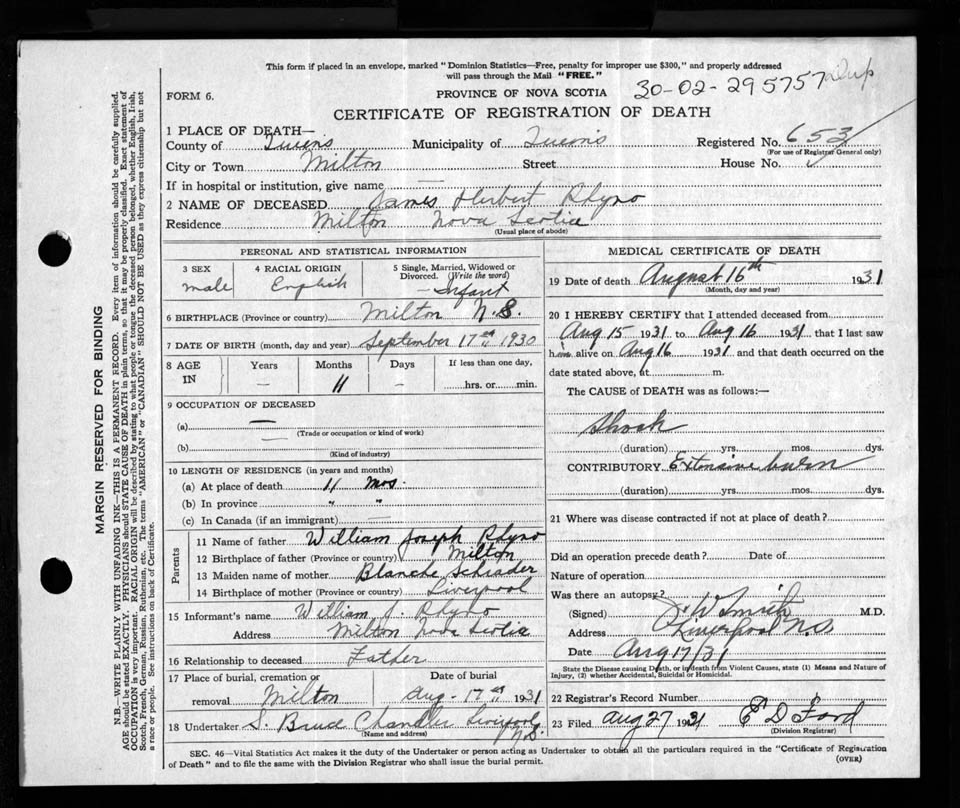 This form if placed in an envelope, marked "Dominion Statistics—Free, penalty for improper use $300," and properly addressed
will pass through the Mail "FREE."
FORM 6.
PROVINCE OF NOVA SCOTIA
30-02-295757 Dup
CERTIFICATE OF REGISTRATION OF DEATH
1 PLACE OF DEATH—
County of Queens Municipality of Queens Registered No. 653
(For use of Registrar General only)
City or Town Milton Street House No.
If in hospital or institution, give name —
2 NAME OF DECEASED James Herbert Rhyno
Residence Milton Nova Scotia
(Usual place of abode)
PERSONAL AND STATISTICAL INFORMATION
3 SEX
male
4 RACIAL ORIGIN
English
5 Single, Married, Widowed or
Divorced. (Write the word)
— Infant
6 BIRTHPLACE (Province or country) Milton N.S.
7 DATE OF BIRTH (month, day and year) September 17th 1930
8 AGE
IN
Years
—
Months
11
Days
—
If less than one day,
hrs. or min.
9 OCCUPATION OF DECEASED
(a) —
(Trade or occupation or kind of work)
(b)
(Kind of industry)
10 LENGTH OF RESIDENCE (in years and months)
(a) At place of death 11 mos.
(b) In province " "
(c) In Canada (if an immigrant) —
Parents
11 Name of father William Joseph Rhyno
12 Birthplace of father (Province or country) Milton
13 Maiden name of mother Blanche Schrader
14 Birthplace of mother (Province or country) Liverpool
15 Informant's name William J. Rhyno
Address Milton Nova Scotia
16 Relationship to deceased Father
17 Place of burial, cremation or
removal Milton
Date of burial
Aug-17th 1931
18 Undertaker S. Bruce Chandler Liverpool
N.S.
(Name and address)
MEDICAL CERTIFICATE OF DEATH
19 Date of death August 16th 1931
(Month, day and year)
20 I HEREBY CERTIFY that I attended deceased from
Aug 15 1931 to Aug 16 1931 that I last saw
him alive on Aug 16 1931 and that death occurred on the
date stated above, at m.
The CAUSE of DEATH was as follows:—
Shock
(duration) yrs. mos. dys.
CONTRIBUTORY. Extensive burn
(duration) yrs. mos. dys.
21 Where was disease contracted if not at place of death?
Did an operation precede death? Date of
Nature of operation
Was there an autopsy?
(Signed) J W Smith M.D.
Address Liverpool N.S
Date Aug 17/31
State the Disease causing Death, or in death from Violent Causes, state (1) Means and Nature of
Injury, (2) whether Accidental, Suicidal or Homicidal.
22 Registrar's Record Number
23 Filed Aug 27 1931 E D Ford
(Division Registrar)
SEC. 46—Vital Statistics Act makes it the duty of the Undertaker or person acting as Undertaker to obtain all the particulars required in the "Certificate of Registration
of Death" and to file the same with the Division Registrar who shall issue the burial permit.
(OVER)
MARGIN RESERVED FOR BINDING
N.B.—WRITE PLAINLY, WITH UNFADING INK—THIS IS A PERMANENT RECORD. Every item of information should be carefully supplied.
AGE should be stated EXACTLY. PHYSICIANS should STATE CAUSE OF DEATH in plain terms, so that it may be properly classified. Exact statement of
OCCUPATION is very important. RACIAL ORIGIN will be described by stating to what people or tongue the deceased person belonged, whether English, Irish,
Scotch, French, German, Russian, Ruthenian, etc. The terms "AMERICAN" or "CANADIAN" SHOULD NOT BE USED as they express citizenship but not
a race or people. See instructions on back of Certificate.